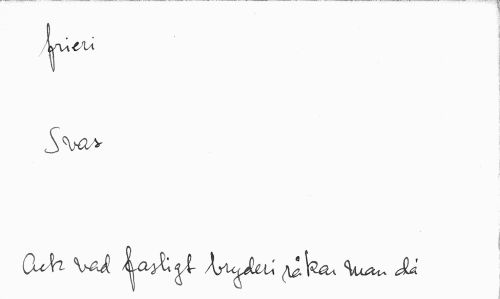 frieri
Svar
Ack vad fasligt bryderi råkar man då